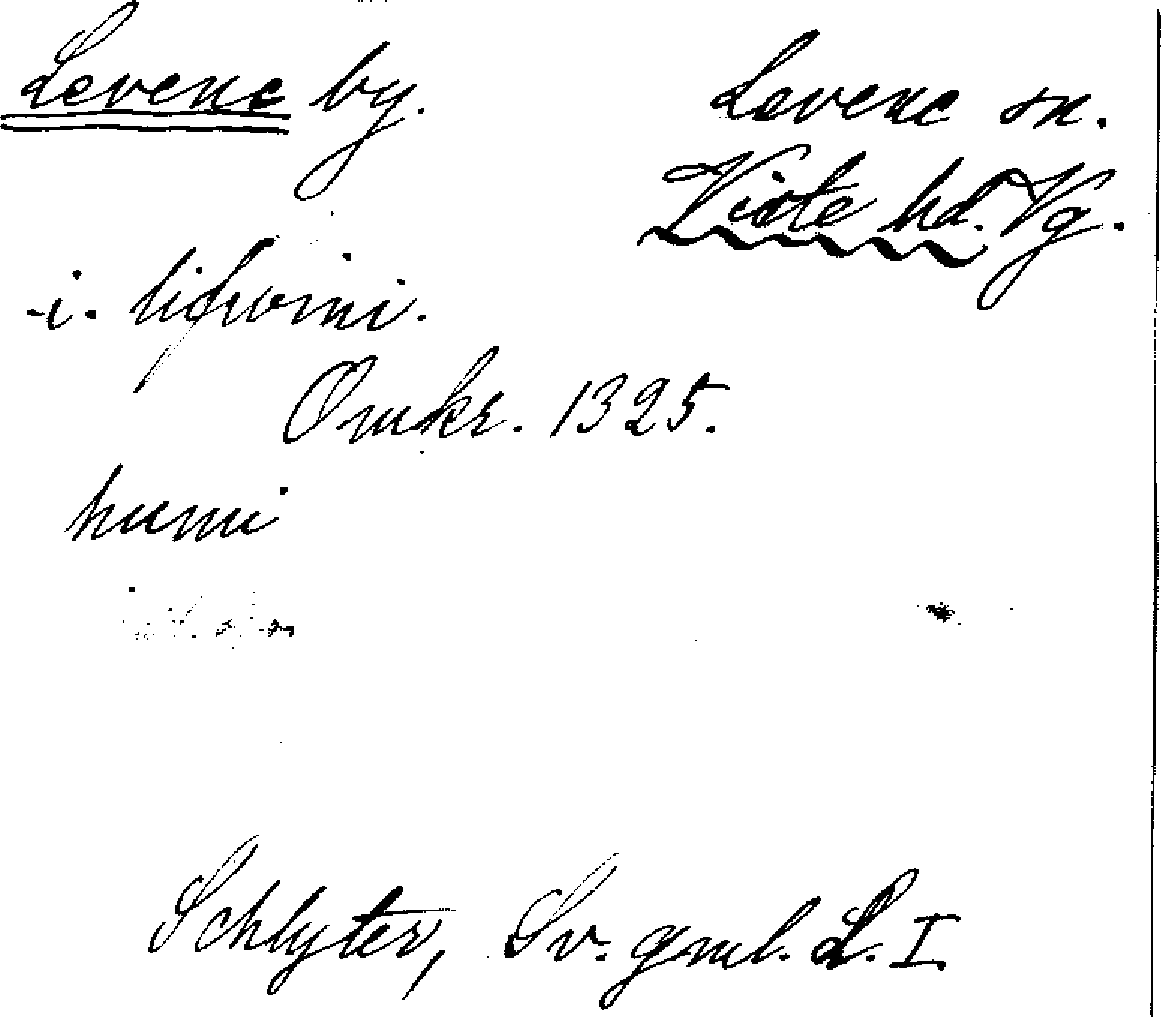 Levene by.
Levene sn.
Viste hd. Vg.
i. lifwini.
Omkr. 1325.
humi
Schlyter, Sv. gml. L. I.